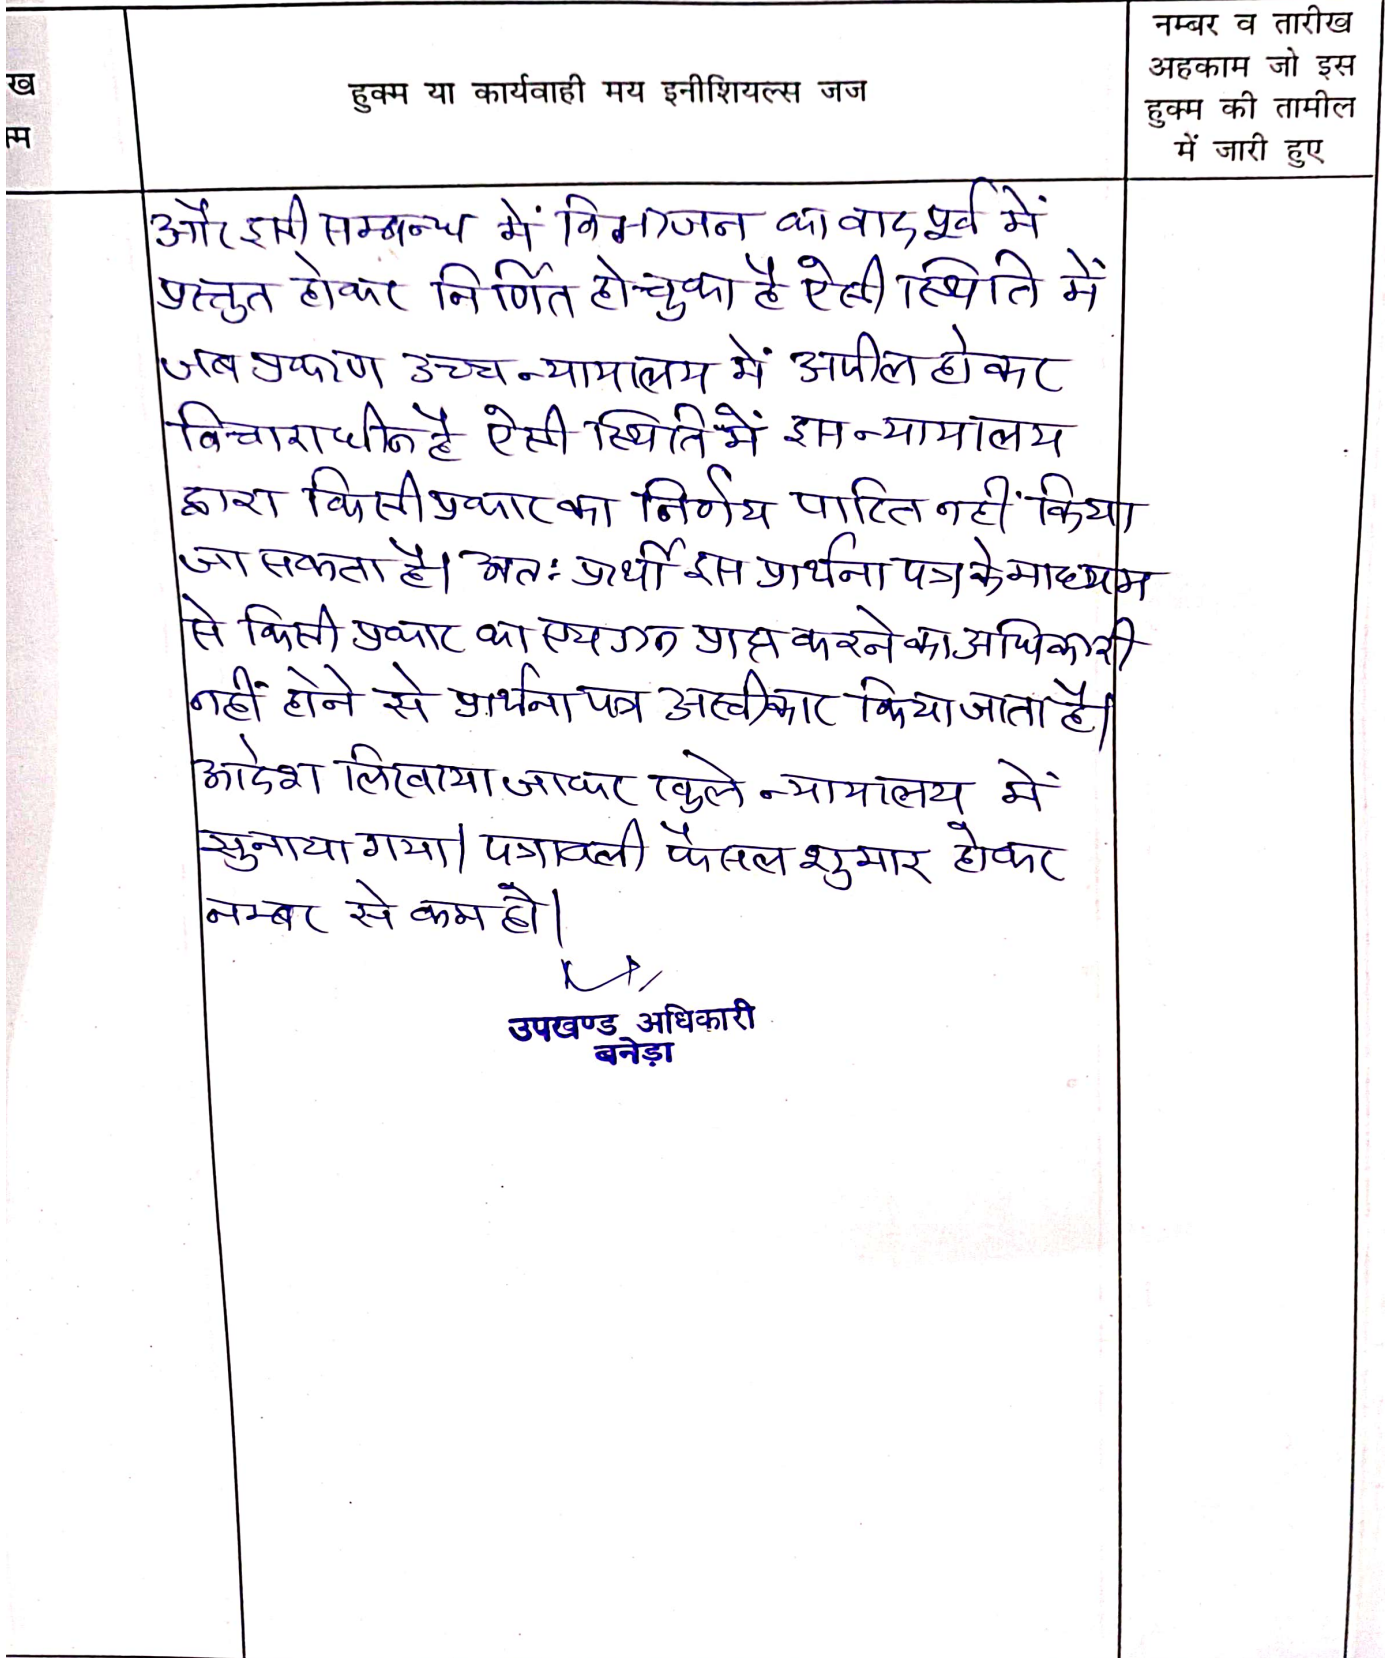 ख
म
हुक्म या कार्यवाही मय इनीशियल्स जज
नम्बर व तारीख
अहकाम जो इस
हुक्म की तामील
में जारी हुए
और इसी सम्बन्ध में विभाजन का वाद पूर्व में
प्रस्तुत होकर निर्णित हो चुका है ऐसी स्थिति में
जब प्रकरण उच्च न्यायालय में अपील होकर
विचाराधीन है ऐसी स्थिति में इस न्यायालय
द्वारा किसी प्रकार का निर्णय पारित नहीं किया
जा सकता है। अतः प्रार्थी इस प्रार्थना पत्र के माध्यम
से किसी प्रकार का स्थगन प्राप्त करने का अधिकारी
नहीं होने से प्रार्थना पत्र अस्वीकार किया जाता है।
आदेश लिखाया जाकर खुले न्यायालय में
सुनाया गया। पत्रावली फैसल शुमार होकर
नम्बर से कम हो।
उपखण्ड अधिकारी
बनेड़ा